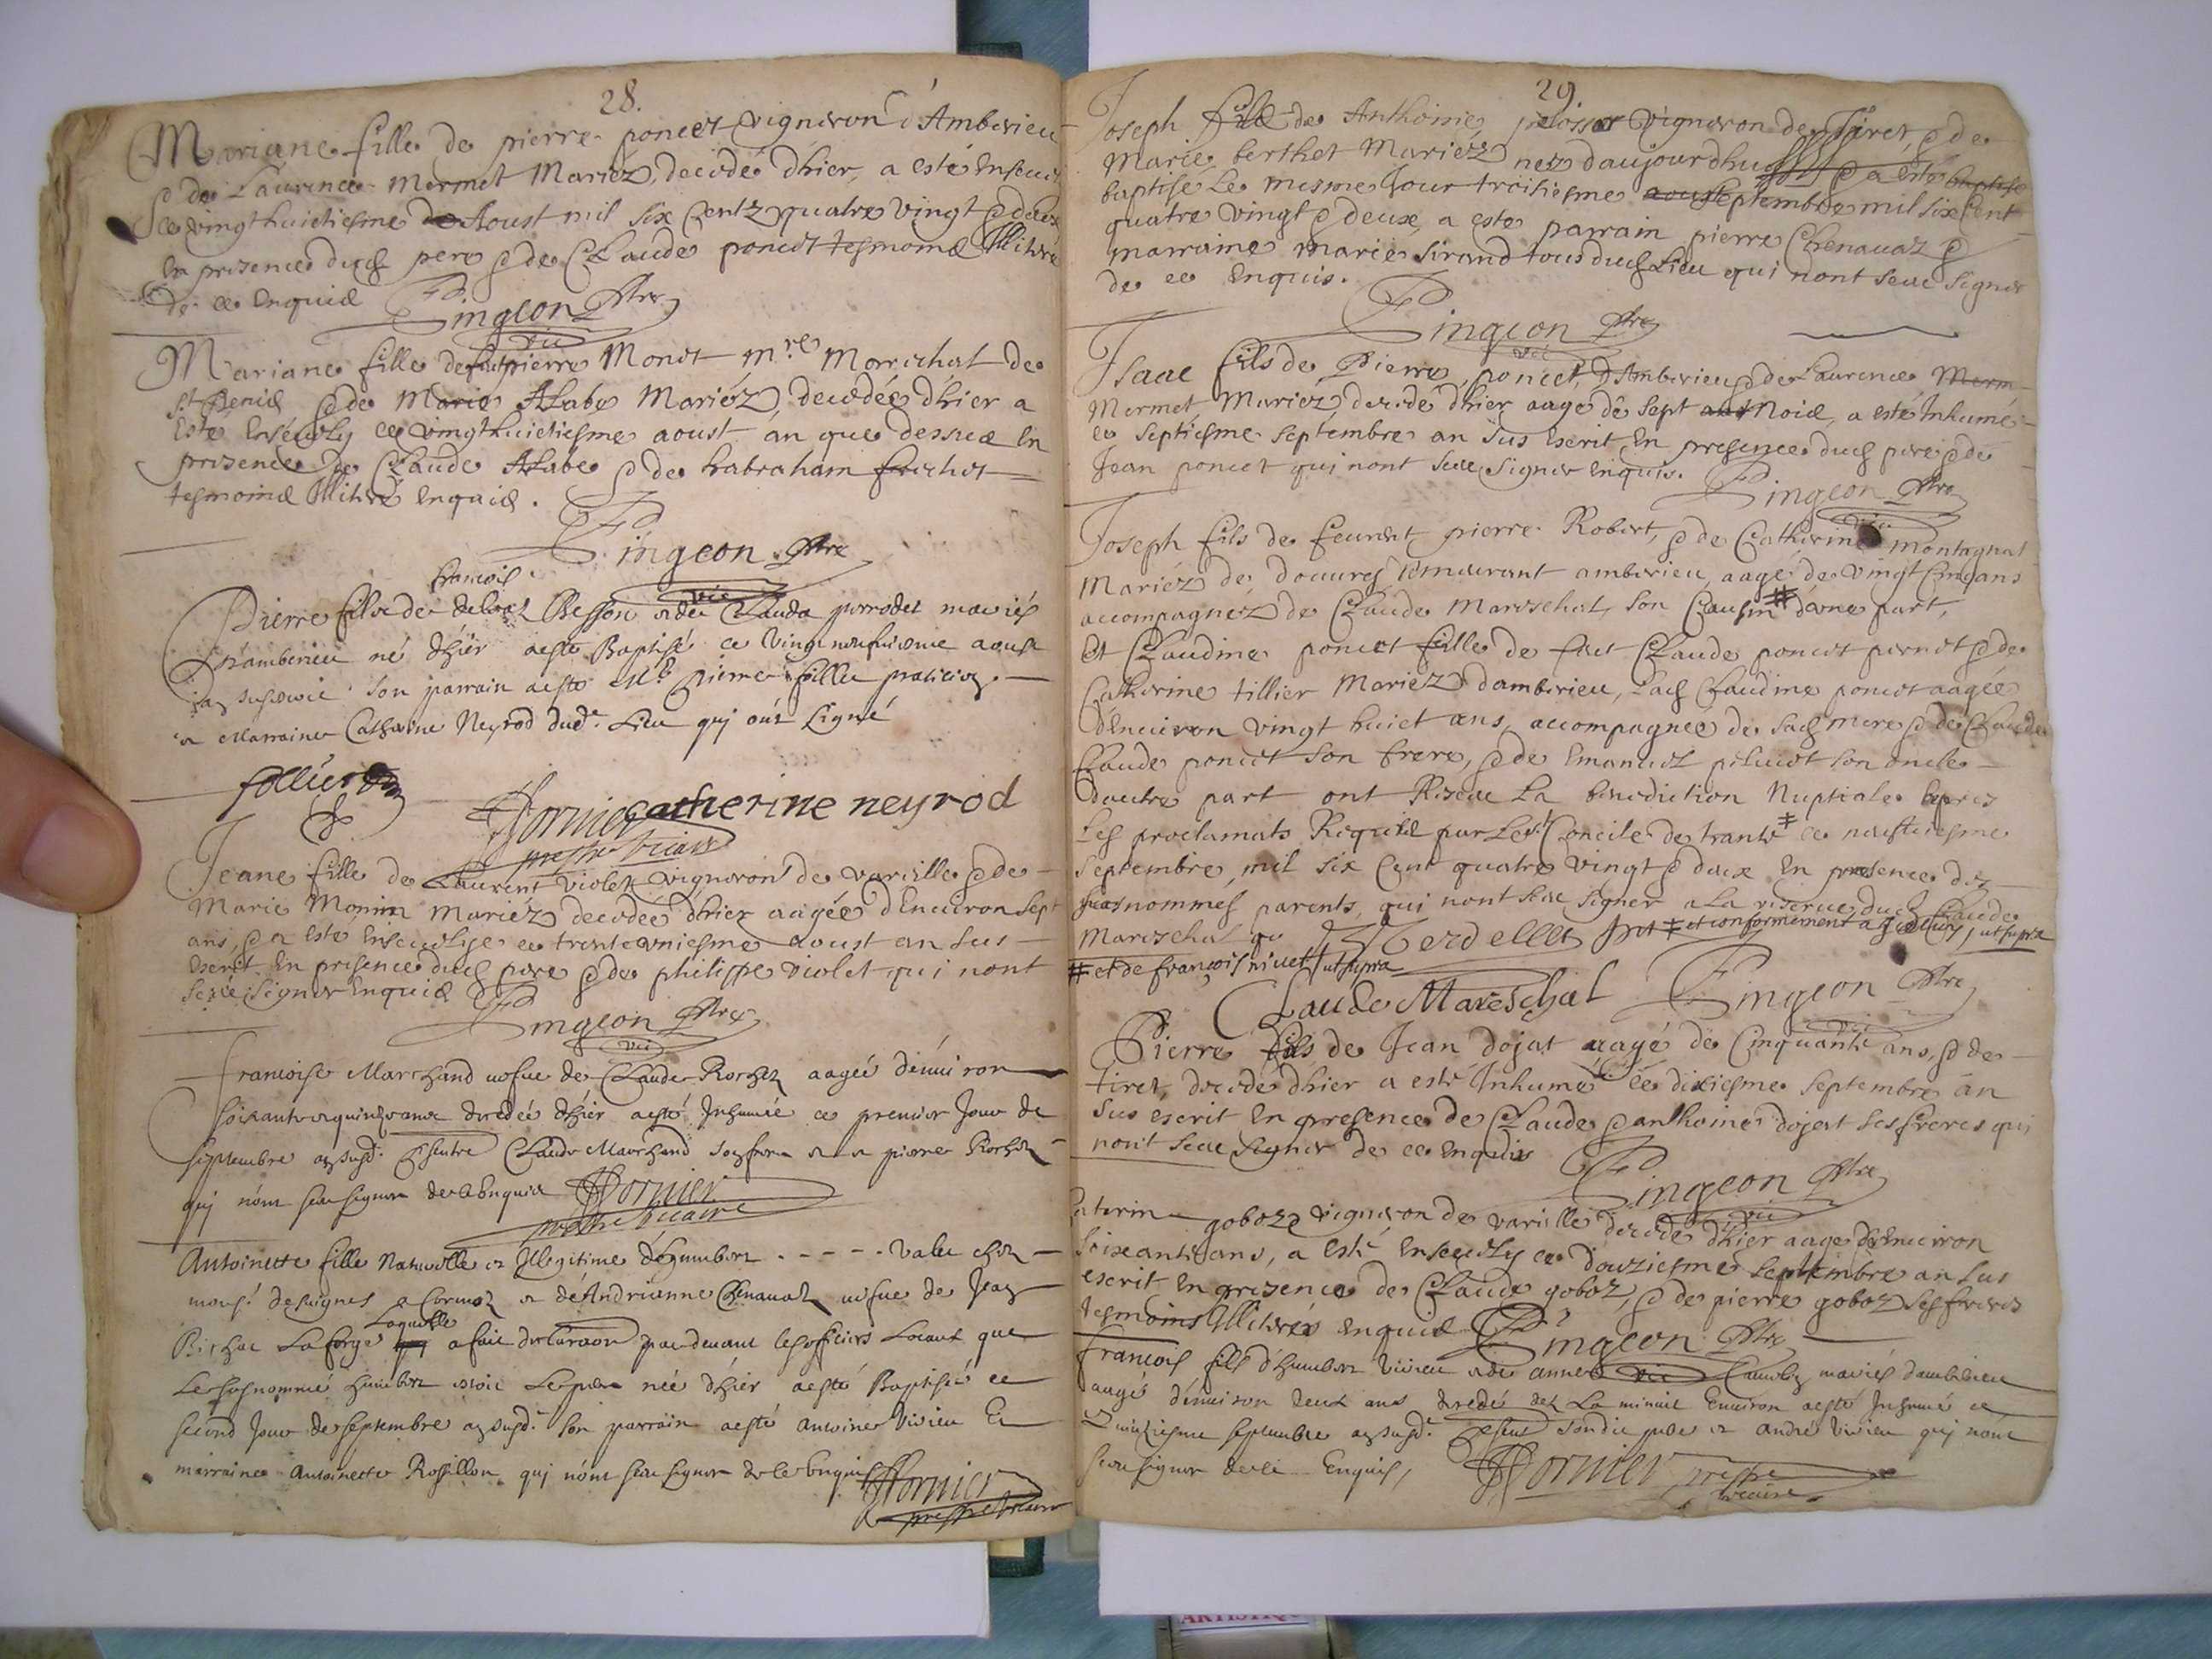 28.
Mariane fille de pierre poncet vigneron d'Amberieu
& de Laurence Mermet Mariéz, decedé dhier, a esté Enseuely
ce vingthuictiesme Aoust mil six Centz quatre vingt & deux
En presence dud pere & de Claude poncet tesmoins Illiteré
de ce Enquis Pingeon Ptre
vic
Mariane fille de fut pierre Monet Mre Mareschal de
St Denis & de Marie Alabe Mariéz, decedée d'hier a
Esté Ensevely ce vingthuictiesme aoust an que dessus En
presence de Claude Alabe & de habraham frechet
tesmoins Illiteré Enquis.
Pingeon Ptre
vic
francois
Pierre fils de Besson & de Clauda perrodet mariés
d'amberieu né d'hier a esté Baptisé ce Vingt neufuieme aoust
an susdit son parrain a esté Me Pierre follier praticien
& Marraine Catherine Neyrod dud. Lieu qui ont signé
follier
Jornier Catherine neyrod
prestre vicaire
Jeane fille de Laurent violet vigneron de vareille & de
Marie Monin mariéz decedee dhier aagée d'Enuiron sept
ans, & a Esté Enseuelye ce trente vniesme aoust an sus
escrit En presence dud pere & de philippe violet qui nont
sceu signer Enquis
Pingeon Ptre
vic
francoise Marchand vefue de Claude Rochet aagée d'enuiron
soixante quinze ans decedée d'hier a esté Inhumée ce premier Jour de
septembre an susd. presentz Claude Marchand son frere & pierre Rochet
qui n'ont sceu signer de ce Enquis Jornier
prestre vicaire
Antoinette fille Naturelle & Illegitime d'humbert - - - - - valet chez
mons. desuignes a Cormoz & de Andrienne Chenaual vefue de Jean
laquelle
Bichat La forge a fait declaraon par deuant les officiers Locaux que
Le susnommé humbert estoit Le pere née d'hier a esté Baptisée ce
second Jour de septembre an susd. son parrain a esté antoine viuieu Et
marraine Antoinette Rossillon qui n'ont sceu signer de ce Enquis Jornier
prestre vicaire
29.
Joseph fils de Anthoine pelosset vigneron de Tiret, & de
Marie berthet Mariéz nez daujourdhuy & a esté baptise
baptise Le mesme Jour troisiesme aoust septembre mil six Cent
quatre vingt & deux, a esté parrain pierre Chenauaz &
marraine marie Sirand tous dud Lieu qui nont sceu signer
de ce Enquis.
Pingeon Ptre
vic
Isaac fils de Pierre poncet, d'Amberieu & de Laurence Merm
Mermet Mariéz, decedé dhier aage de sept ans Mois, a esté Inhumé
ce septiesme septembre an sus Escrit En presence dud pere & de
Jean poncet qui nont sceu signer Enquis.
Pingeon Ptre
vic
Joseph fils de feu pierre Robert, & de Catherine montagnat
Mariéz de douures demeurant amberieu, aagé de vingt Cinq ans
accompagnéz de Claude Mareschal, son Cousin # d'vne part,
Et Claudine poncet fille de fut Claude poncet pernet & de
Catherine tillier Mariéz damberieu, Lad Claudine poncet aagée
d'Enuiron vingt huict ans, accompagnée de sad mere & de Claude
Claude poncet son frere, & de Emanuel peluet son oncle
dautre part ont Receu La benediction Nuptiale apres
Les proclamats Requis par Le st Concile de trante ‡ ce neufuiesme
Septembre, mil six Cent quatre vingt & deux En presence des
susnommes parents, qui nont sceu signer a La reserue dud Claude
Mareschal ‡ et conformement ut supra
# et de francois niuet / ut supra
Claude Mareschal Pingeon Ptre
vic
Pierre fils de Jean dojat aagé de Cinquante ans, & de
tiret, decedé dhier a esté Inhumé ce dixiesme septembre an
sus escrit En presence de Claude & anthoine dojat ses freres qui
nont sceu signer de ce Enquis
Pingeon Ptre
vic
goboz vigneron de vareille decedé dhier aage d'Enuiron
soixante ans, a esté Enseuely ce douziesme septembre an sus
escrit En presence de Claude goboz, & de pierre goboz ses freres
tesmoins Illiterés enquis Pingeon Ptre
vic
francois fils d'humbert viuieu & de anne mariés d'amberieu
aagé d'enuiron deux ans decedé La minuit Enuiron a esté Inhumé ce
quinziesme septembre an susd. present sondit pere & andré viuieu qui n'ont
sceu signer de ce Enquis,
Jornier prestre
vicaire
ARTISTIQ